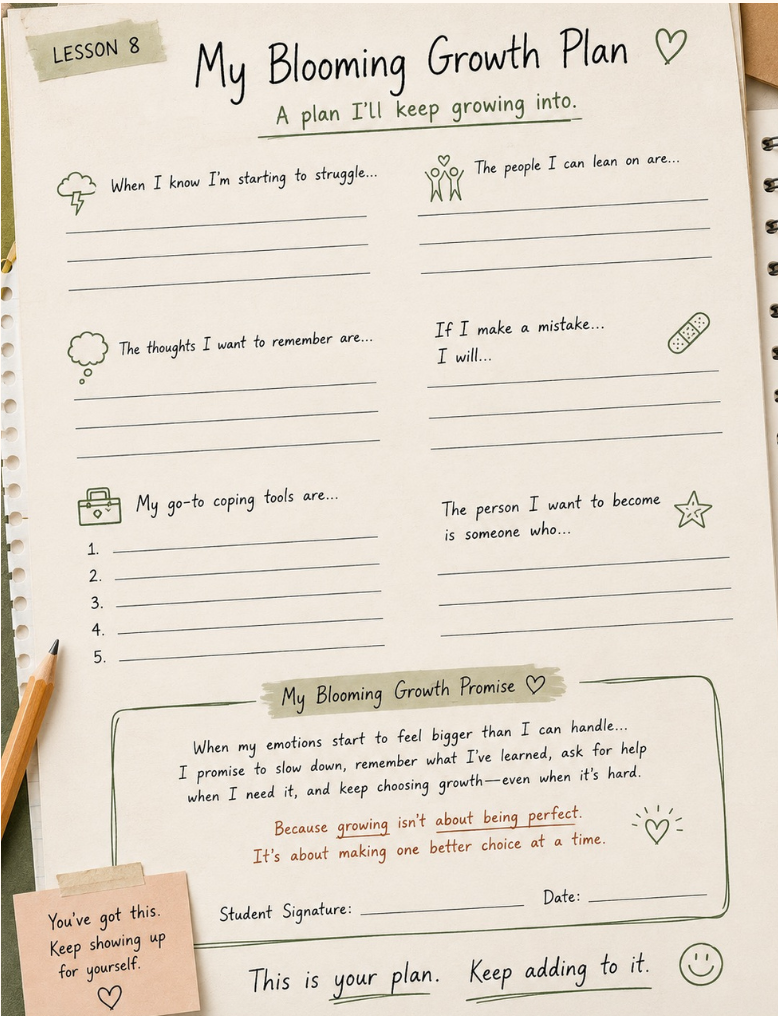 LESSON 8
My Blooming Growth Plan
A plan I'll keep growing into.
When I know I'm starting to struggle...
The people I can lean on are...
The thoughts I want to remember are...
If I make a mistake...
I will...
My go-to coping tools are...
1.
2.
3.
4.
5.
The person I want to become
is someone who...
My Blooming Growth Promise
When my emotions start to feel bigger than I can handle...
I promise to slow down, remember what I've learned, ask for help
when I need it, and keep choosing growth—even when it's hard.
Because growing isn't about being perfect.
It's about making one better choice at a time.
Student Signature:
Date:
You've got this.
Keep showing up
for yourself.
This is your plan. Keep adding to it.